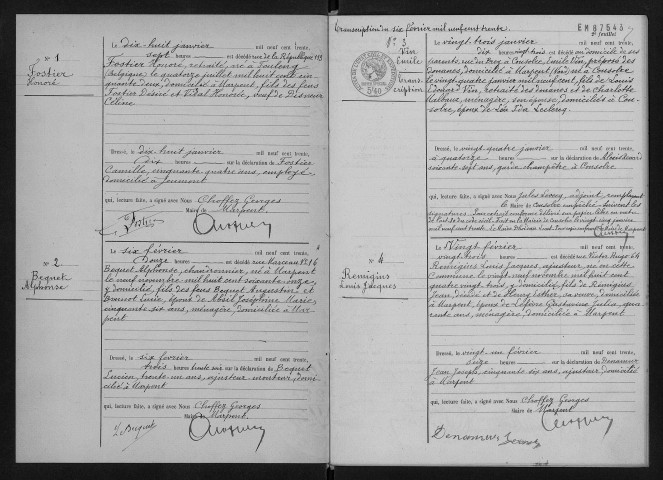 N° 1
Fostier
Honoré
Le dix-huit janvier mil neuf cent trente,
sept heures est décédé rue de la République 119
Fostier Honoré, retraité, né à
(Belgique) le quatorze juillet mil huit cent cin
quante deux, domicilié à Marpent, fils des feus
Fostier Désiré et Vidal Honorée, veuf de
Céline
Dressé, le dix-huit janvier mil neuf cent trente,
dix heures sur la déclaration de Fostier
Camille, cinquante quatre ans, employé
domicilié à Jeumont
qui, lecture faite, a signé avec Nous Choffez Georges
Maire de Marpent.
Fostier
N° 2
Bequet
Alphonse
Le six février mil neuf cent trente,
douze heures est décédé rue Marceau N° 16
Bequet Alphonse, chaudronnier, né à Marpent
le neuf novembre mil huit cent soixante onze,
y domicilié, fils des feus Bequet Augustin et
Lucie, époux de Joséphine Marie,
cinquante six ans, ménagère, domiciliée à Mar
pent
Dressé, le six février mil neuf cent trente,
trois heures trente soir sur la déclaration de Bequet
Lucien, trente un ans, ajusteur monteur, domi
cilié à Marpent
qui, lecture faite, a signé avec Nous Choffez Georges
Maire de Marpent.
L Bequet
Transcription du six février mil neuf cent trente.
EM 87543
2e feuillet
N° 3
Vin
Emile
Trans
cription
5/40
Le vingt-trois janvier mil neuf cent trente,
dix heures vingt trois est décédé au domicile de ses
parents, rue du à Cousolre, Emile Vin, préposé des
douanes, domicilié à Marpent (Nord) né à Cousolre
le vingt janvier mil neuf cent, fils de Louis
Edouard Vin, retraité des douanes et de Charlotte
Malbaux, ménagère, son épouse, domiciliés à Cou
solre, époux de Léa Ida Leclercq.
Dressé, le vingt quatre janvier mil neuf cent trente,
à quatorze heures sur la déclaration de
soixante ans, garde champêtre à Cousolre
qui, lecture faite, a signé avec Nous Jules adjoint remplaçant
le Maire de Cousolre empêché. Suivent les
signatures. Pour extrait conforme délivré sur papier libre en vertu
mil neuf cent trente.
N° 4
Remigius
Louis Jacques
Le Vingt février mil neuf cent trente,
vingt trois heures est décédé rue Victor Hugo 64
Remigius Louis Jacques, ajusteur, né en cette
Commune le vingt neuf novembre mil huit cent
quatre vingt trois, y domicilié, fils de Remigius
Jean, décédé et de Fleury Esther, sa veuve, domiciliée
à Marpent, époux de Julia, qua
rante ans, ménagère, domiciliée à Marpent.
Dressé, le vingt-un février mil neuf cent trente,
onze heures sur la déclaration de Denamur
Jean Joseph, cinquante six ans, ajusteur domicilié
à Marpent
qui, lecture faite, a signé avec Nous Choffez Georges
Maire de Marpent
Denamur